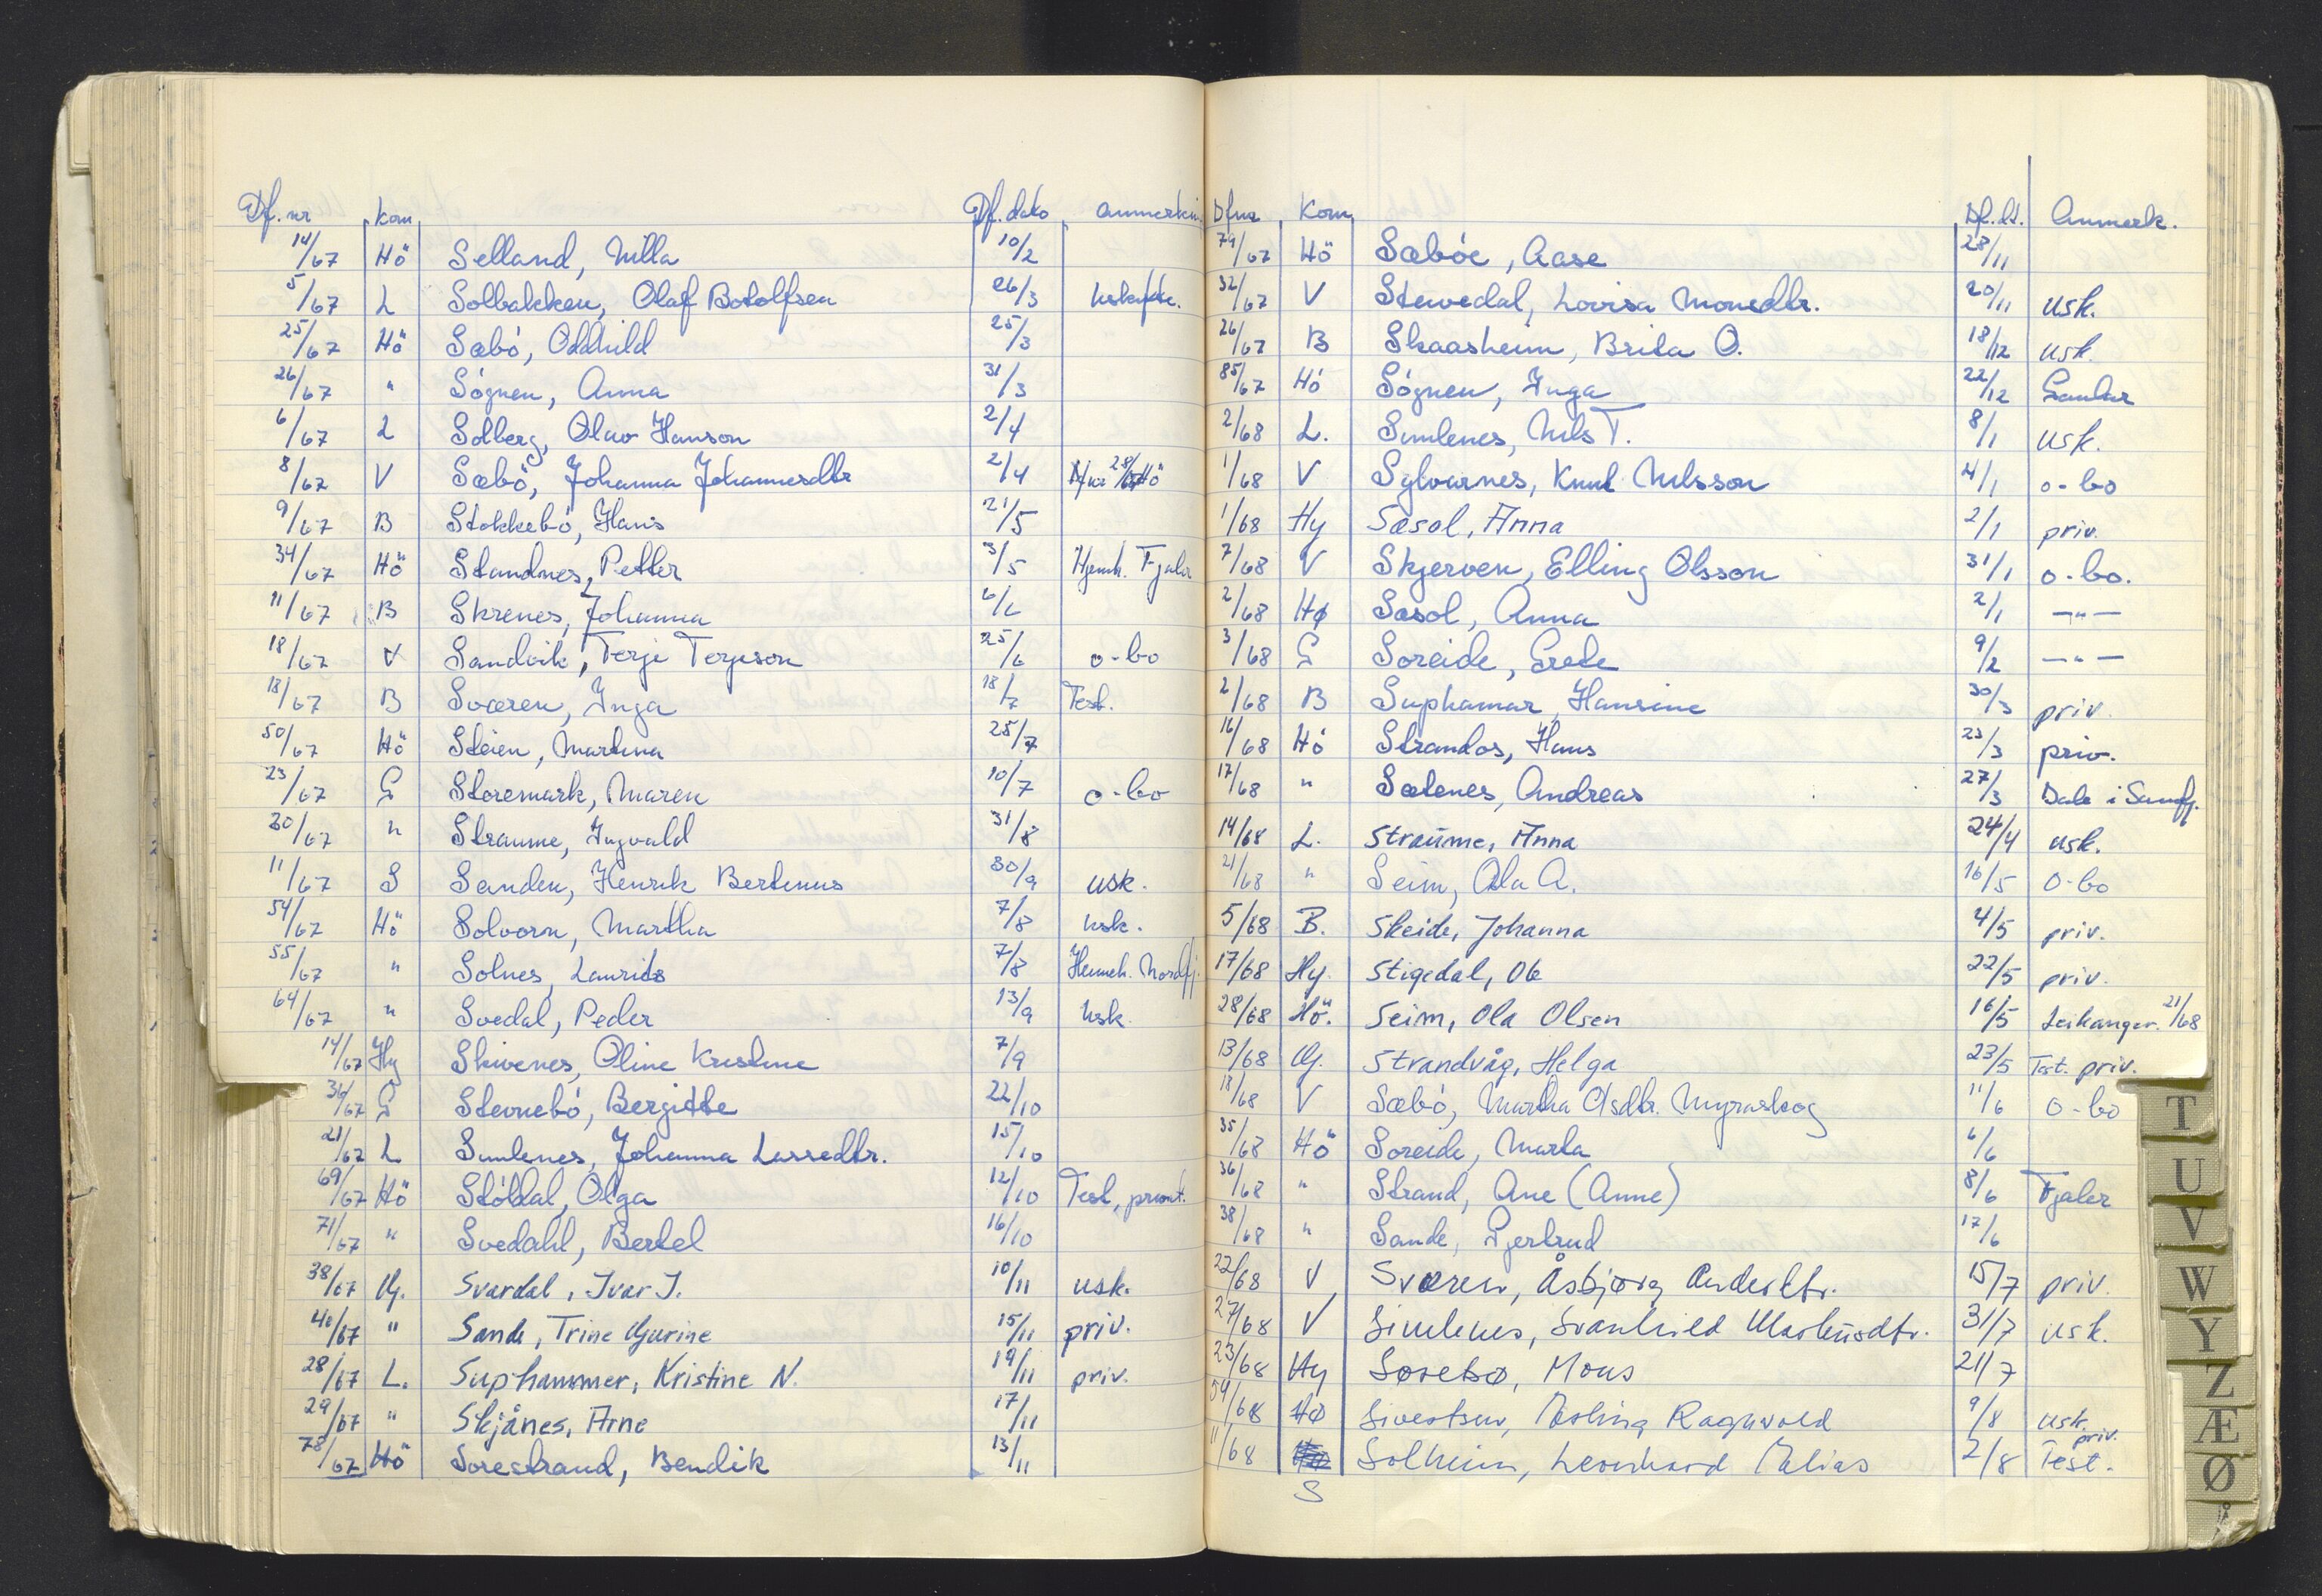 Df. nr kom Df. dato anmerkin
14/67 Hö Selland, Nilla 10/2
5/67 L Solbakken, Olaf Botolfsen 26/3 uskifte.
25/67 Hö Sæbö, Oddhild 25/3
26/67 " Sögnen, Anna 31/3
6/67 L Solberg, Olav Hanson 2/4
8/67 V Sæbö, Johanna Johannesdtr 2/4 Hö
9/67 B Stokkebö, Hans 21/5
34/67 Hö Standnes, Petter 3/5 Hjemh. Fjaler
11/67 B Skrenes, Johanna 6/6
18/67 V Sandvik, Terje Terjeson 25/6 o-bo
18/67 B Sværen, Inga 18/7 Test.
50/67 Hö Steien, Martina 25/7
23/67 G Storemark, Maren 10/7 o-bo
30/67 " Straume, Ingvald 31/8
11/67 S Sanden, Henrik Bertinus 30/9 usk.
54/67 Hö Solvorn, Martha 7/8 usk.
55/67 " Solnes, Laurits 7/8 Hemeh. Nordfj.
64/67 " Svedal, Peder 13/9 usk.
14/67 Hy Skivenes, Oline Kristine 7/9
36/67 G Stevnebö, Bergitte 22/10
21/67 L Simlenes, Johanna Lassedtr. 15/10
69/67 Hö Stöldal, Olga 12/10 Test, privat.
71/67 " Svedahl, Bertel 16/10
38/67 G. Svardal, Ivar J. 10/11 usk.
40/67 " Sande, Trine Gurine 15/11 priv.
28/67 L. Suphammer, Kristine N. 19/11 priv.
29/67 " Skjånes, Arne 17/11
78/67 Hö Sorestrand, Bendik 13/11
Dfnr Kom Df. dt. Anmerk.
79/67 Hö Sæböe, Aase 28/11
32/67 V Stevedal, Lovisa Monsdtr. 20/11 usk.
26/67 B Skaasheim, Brita O. 18/12 usk.
85/67 Hö Sögnen, Inga 22/12 Gaular
2/68 L. Simlenes, Nils T. 8/1 usk.
1/68 V Sylvarnes, Knut Nilsson 4/1 o-bo
1/68 Hy Sæsol, Anna 2/1 priv.
7/68 V Skjerven, Elling Olsson 31/1 o-bo.
2/68 Hø Sæsol, Anna 2/1 —"—
3/68 G Soreide, Grete 9/2 —"—
2/68 B Suphamar, Hansine 30/3 priv.
16/68 Hö Strandos, Hans 23/3 priv.
17/68 " Sætenes, Andreas 27/3 Dale i Sunnfj.
14/68 L. Straume, Anna 24/4 usk.
21/68 " Seim, Ola A. 16/5 o-bo
5/68 B. Skeide, Johanna 4/5 priv.
17/68 Hy. Stigedal, Ole 22/5 priv.
28/68 Hö. Seim, Ola Olsen 16/5 Leikanger. 21/68
13/68 G. Strandvåg, Helga 23/5 Test. priv.
18/68 V Sæbö, Martha Olsdtr. Myraskog 11/6 o-bo
35/68 Hö Soreide, Marta 6/6
36/68 " Strand, Ane (Anne) 8/6 Fjaler
38/68 " Sande, Gjertrud 17/6
22/68 V Sværen, Åsbjørg Andersdtr. 15/7 priv.
27/68 V Simlenes, Svanhild Markusdtr. 31/7 usk.
23/68 Hy Sørebø, Mons 21/7
54/68 Hø Sivertsen, Ragnvald 9/8 usk.
11/68 S Solheim, Leonhard Elias 2/8 Test. priv.
T
U
V
W
Y
Z
Æ
Ø
Å